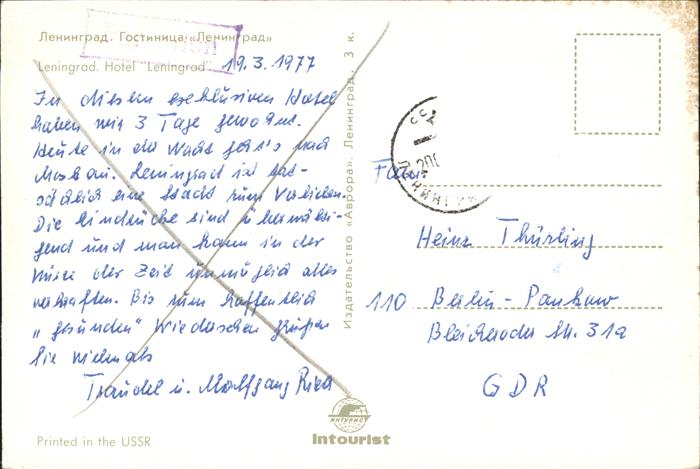 Ленинград. Гостиница «Ленинград»
Leningrad. Hotel "Leningrad"
19.3.1977
In diesem exklusiven Hotel
haben wir 3 Tage gewohnt.
Heute in der Nacht geht's nach
Moskau. Leningrad ist tat-
sächlich eine Stadt zum Verlieben.
Die Eindrücke sind überwälti-
gend und man kann in der
Kürze der Zeit unmöglich alles
verkraften. Bis zum hoffentlich
"gesunden" Wiedersehen grüßen
Sie vielmals
Traudel u. Wolfgang
Printed in the USSR
Издательство «Аврора», Ленинград. 3 к.
Heinz Thürling
110 Berlin-Pankow
Bleicheroder Str. 31a
GDR
ИНТУРИСТ
Intourist